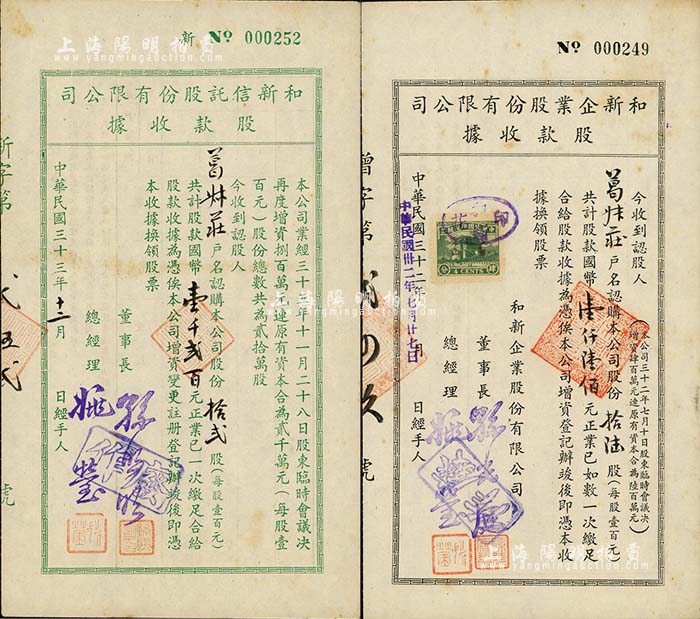 上海陽明拍賣
www.yangmingauction.com
新 Nº 000252
和新信託股份有限公司
股款收據
本公司業經三十三年十一月二十八日股東臨時會議決
再度增資捌百萬元連原有資本合為貳千萬元（每股壹
百元）股份總數共為貳拾萬股
今收到認股人
葛妹莊 戶名認購本公司股份 拾貳 股（每股壹百元）
共計股款國幣 壹千貳百 元正業已一次繳足合給
股款收據為憑俟本公司增資變更註册登記辦竣後即憑
本收據換領股票
董事長
總經理
中華民國三十三年十二月 日經手人
新字第
貳五貳
號
Nº 000249
和新企業股份有限公司
股款收據
本公司三十二年七月十日股東臨時會議決
增資肆百萬元連原有資本合為陸百萬元
今收到認股人
葛妹莊 戶名認購本公司股份 拾陸 股（每股壹百元
共計股款國幣 壹仟陸佰 元正業已如數一次繳足
合給股款收據為憑俟本公司增資登記辦竣後即憑本收
據換領股票
和新企業股份有限公司
董事長
總經理
中華民國三十二年 月 日經手人
中華民國卅二年七月廿七日
4 CENTS
增字第
貳四久
號
上海陽明拍賣
www.yangmingauction.com